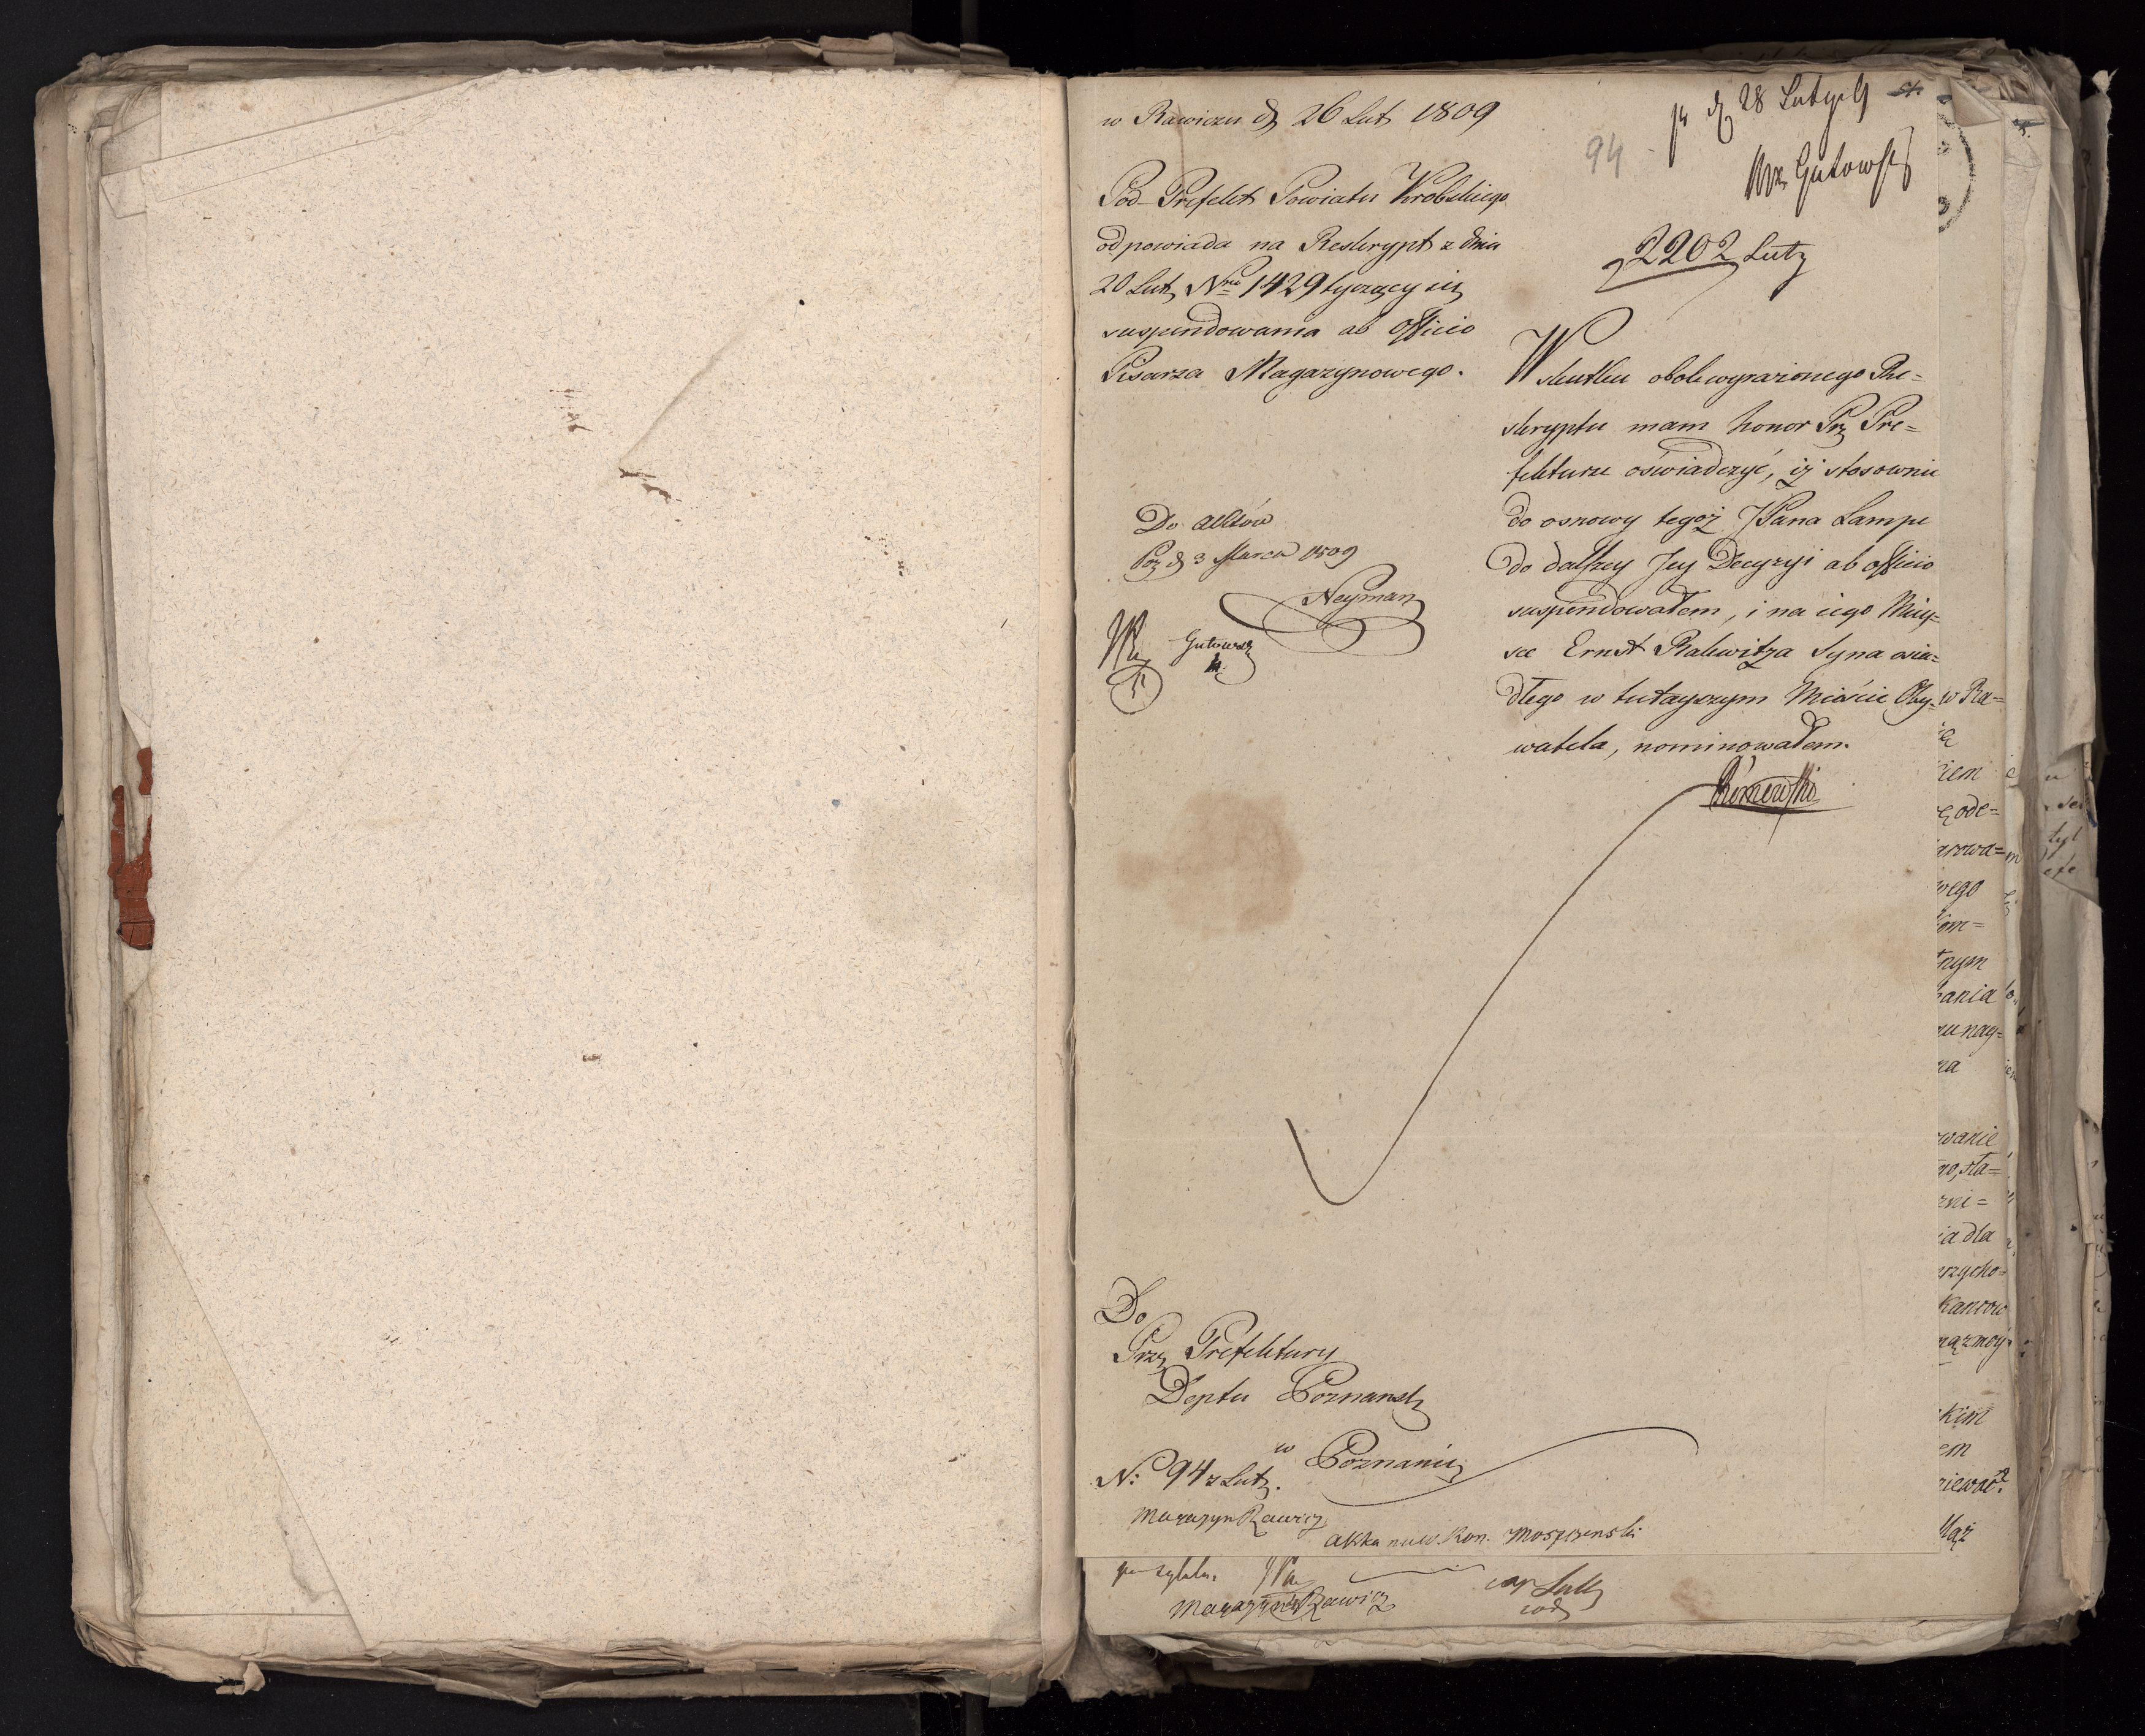 w Rawiczu d 26 Lut 1809
Pod-Prefekt Powiatu Krobskiego
odpowiada na Reskrypt z dnia
20 Lut Nro 1429 tyczący się
suspendowania ab officio
Pisarza Magazynowego.
94
28 Lutego 9
Gutowski
2202 Lut
W
skutku obokwyrażonego Re=
skryptu mam honor Prz Pre=
fekturze oświadczyć, iż stosownie
do osnowy tegoż JPana Lampe
do dalszey Jey Decyzyi ab officio
suspendowałem, i na iego Miey=
sce Ernst Rakwitza Syna osia=
dłego w tutayszym Mieście Oby=
watela, nominowałem.
Do aktów
Poz d 3 Marca 1809
Neyman
Gutowsk
Do
Prze Prefektury
Deptu Poznansk
w Poznaniu
N: 94 z Lut.
Magazyn Rawicz
akta now. Kon. Moszczenski
Magazyn Rawicz
w Ra=
iem
ode=
arowa=
wego
kom=
nym
ania
nag=
na
wanie
no, sta=
ia dla
rzycho=
kim
em